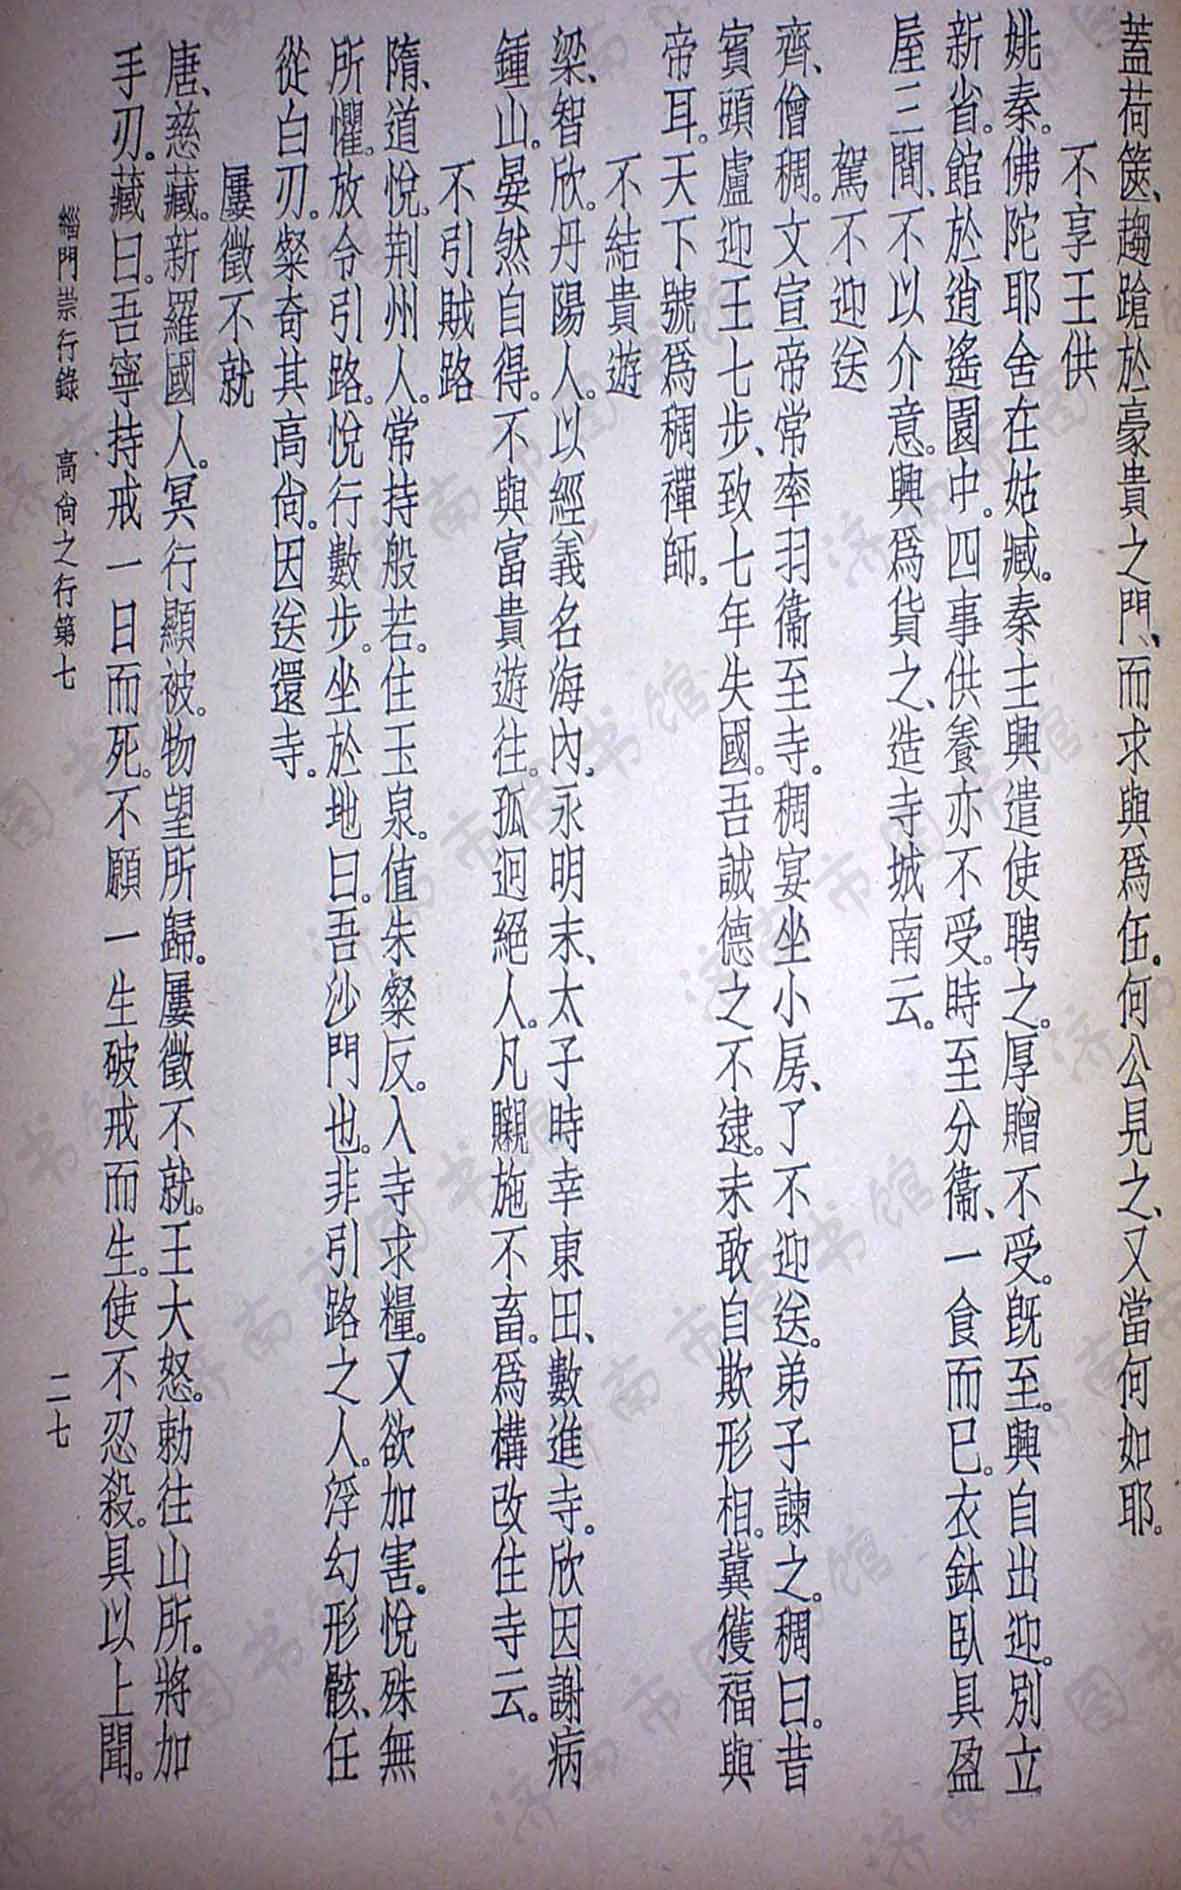 蓋荷篋、趨蹌於豪貴之門、而求與爲伍。何公見之、又當何如耶。
不享王供
姚秦。佛陀耶舍在姑臧。秦主興遣使聘之。厚贈不受。既至。興自出迎。別立
新省。館於逍遙園中。四事供養亦不受。時至分衞、一食而已。衣鉢臥具盈
屋三間、不以介意。興爲貨之、造寺城南云。
駕不迎送
齊、僧稠。文宣帝常率羽衞至寺。稠宴坐小房、了不迎送。弟子諫之。稠曰。昔
賓頭盧迎王七步、致七年失國。吾誠德之不逮。未敢自欺形相。冀獲福與
帝耳。天下號爲稠禪師。
不結貴遊
梁、智欣。丹陽人。以經義名海內。永明末、太子時幸東田、數進寺。欣因謝病
鍾山。晏然自得。不與富貴遊往。孤迥絕人。凡䞋施不畜。爲構改住寺云。
不引賊路
隋、道悅。荆州人。常持般若。住玉泉。值朱粲反。入寺求糧。又欲加害。悅殊無
所懼。放令引路。悅行數步。坐於地曰。吾沙門也。非引路之人。浮幻形骸、任
從白刃。粲奇其高尙。因送還寺。
屢徵不就
唐、慈藏。新羅國人。冥行顯被。物望所歸。屢徵不就。王大怒。勅往山所。將加
手刃。藏曰。吾寧持戒一日而死。不願一生破戒而生。使不忍殺。具以上聞。
緇門崇行錄 高尙之行第七 二七